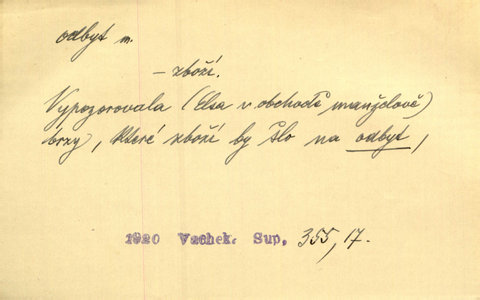 odbyt m.
– zboží.
Vypozorovala (Elsa v obchodě manželově)
brzy, které zboží by šlo na odbyt,
1920 Vachek. Sup, 355,17.